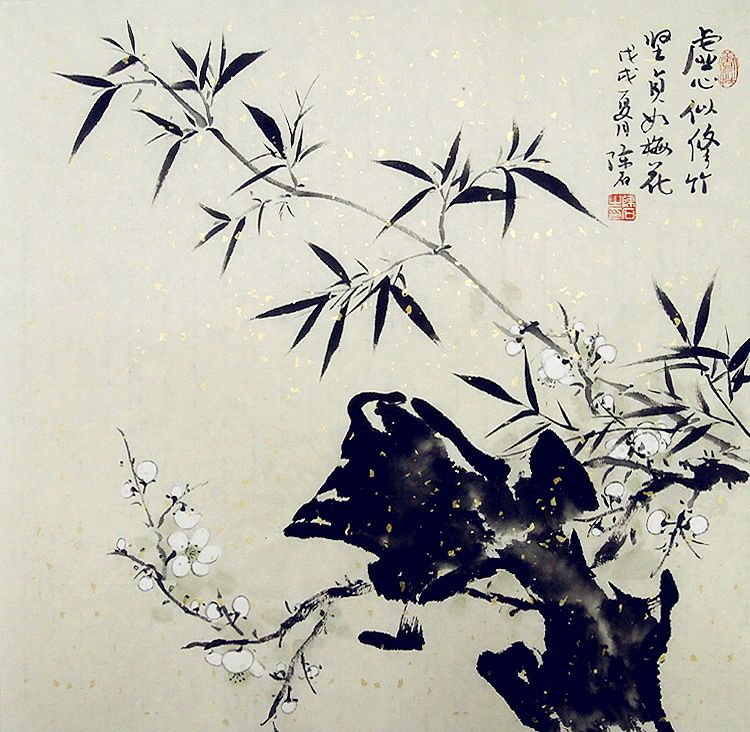 虚心似修竹
坚贞如梅花
戊戌夏月 陈石
陳石之印